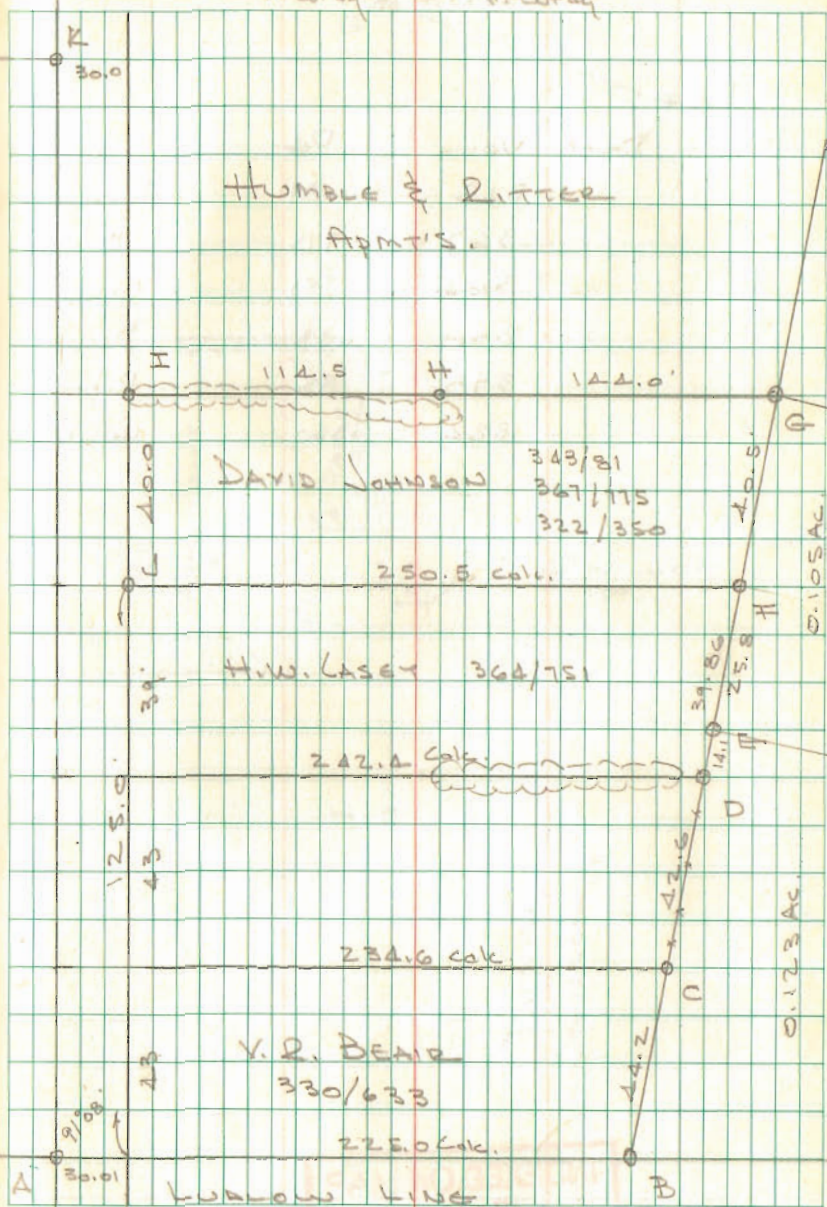 K
30.0
HUMBLE & RITTER
APMT'S.
I 114.5 H 144.0'
G
40.0
DAVID JOHNSON 343/81
367/175
322/350
40.5
0.105 AC.
L 250.5 calc.
39.86
25.8
39'
H.W. CASEY 364/751
242.4 calc.
14.1
D
125.0'
43
42.6
0.123 AC.
234.6 calc.
C
43
V. R. BEAIR
330/633
44.2
91°08'
225.0 calc.
A 30.01 B
LUDLOW LINE